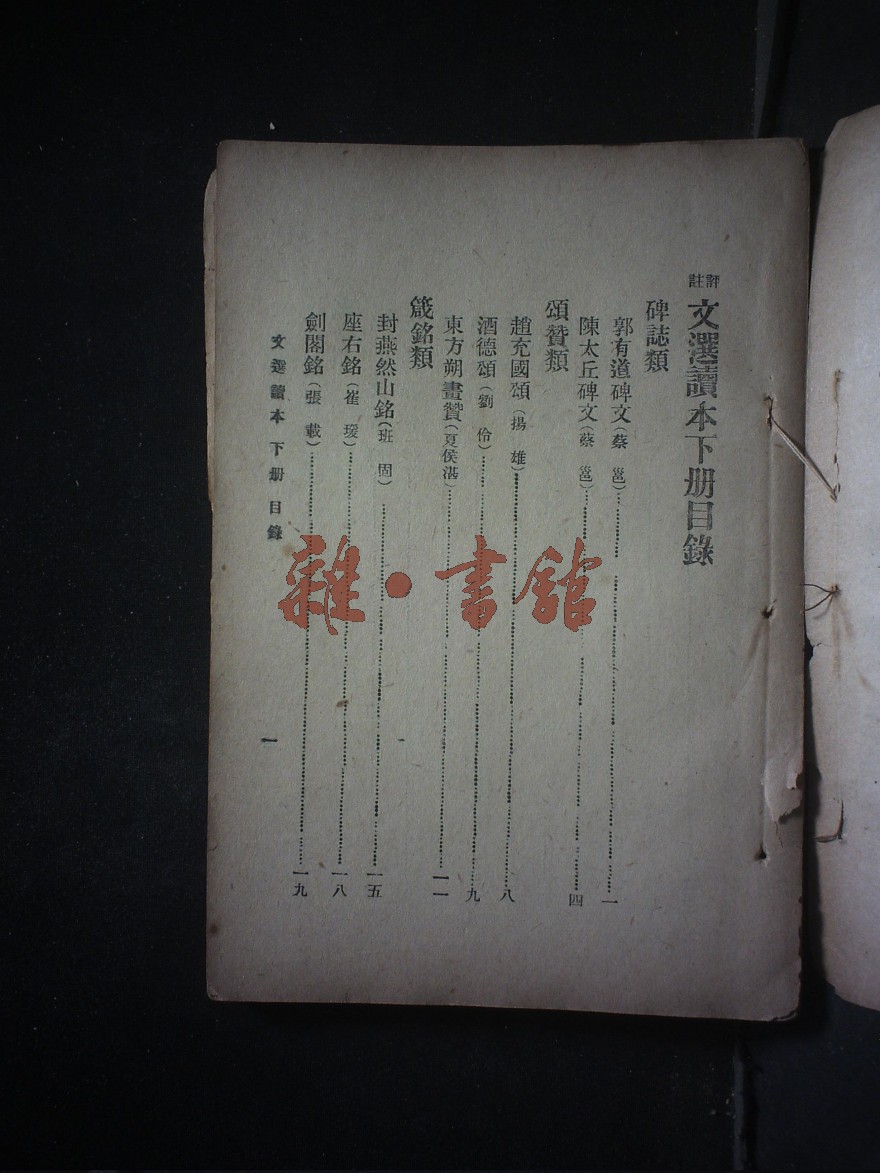 評註 文選讀本下册目錄
碑誌類
郭有道碑文（蔡邕）……一
陳太丘碑文（蔡邕）……四
頌贊類
趙充國頌（揚雄）……八
酒德頌（劉伶）……九
東方朔畫贊（夏侯湛）……一一
箴銘類
封燕然山銘（班固）……一五
座右銘（崔瑗）……一八
劍閣銘（張載）……一九
文選讀本 下册 目錄
一
雜·書館